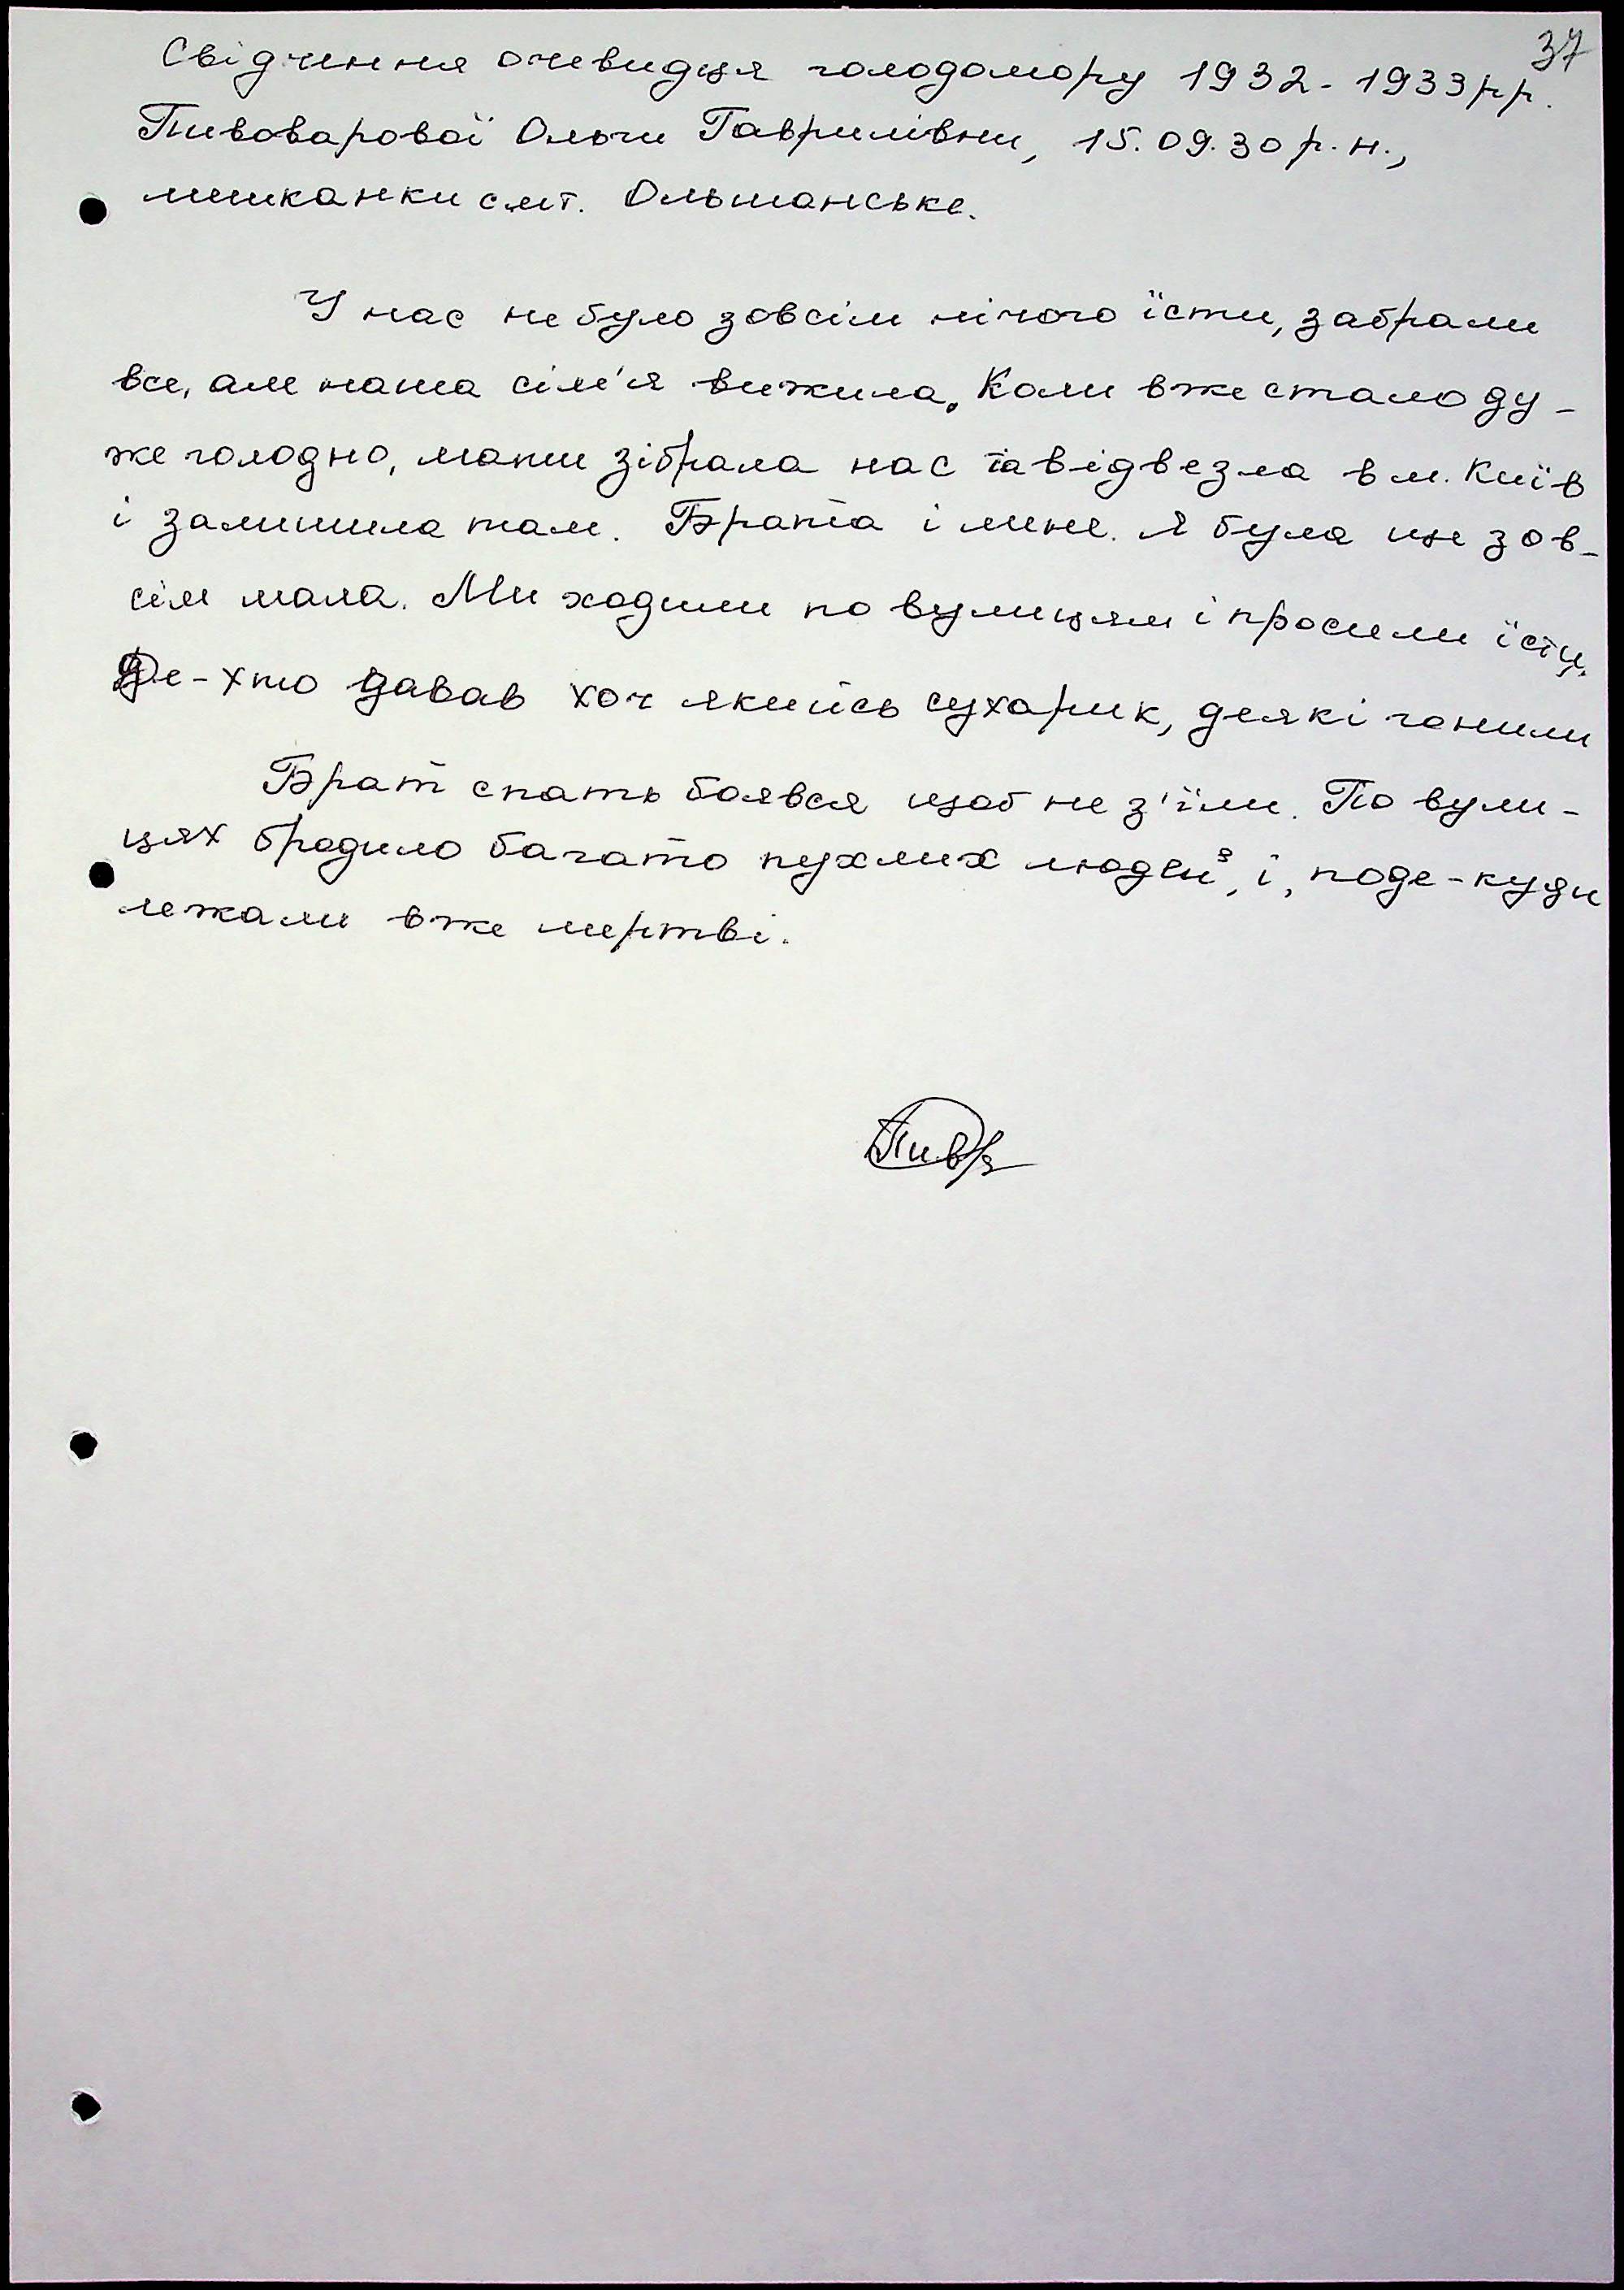 37
Свідчення очевидця голодомору 1932-1933рр.
Пивоварової Ольги Гаврилівни, 15.09.30 р.н.,
мешканки смт. Ольшанське.
У нас не було зовсім нічого їсти, забрали
все, але наша сім'я вижила. Коли вже стало ду-
же голодно, мати зібрала нас та відвезла в м. Київ
і залишила там. Брата і мене. Я була ще зов-
сім мала. Ми ходили по вулицям і просили їсти.
Де-хто давав хоч якийсь сухарик, деякі гонили
Брат спать боявся щоб не з'їли. По вули-
цях бродило багато пухлих людей, і, поде-куди
лежали вже мертві.